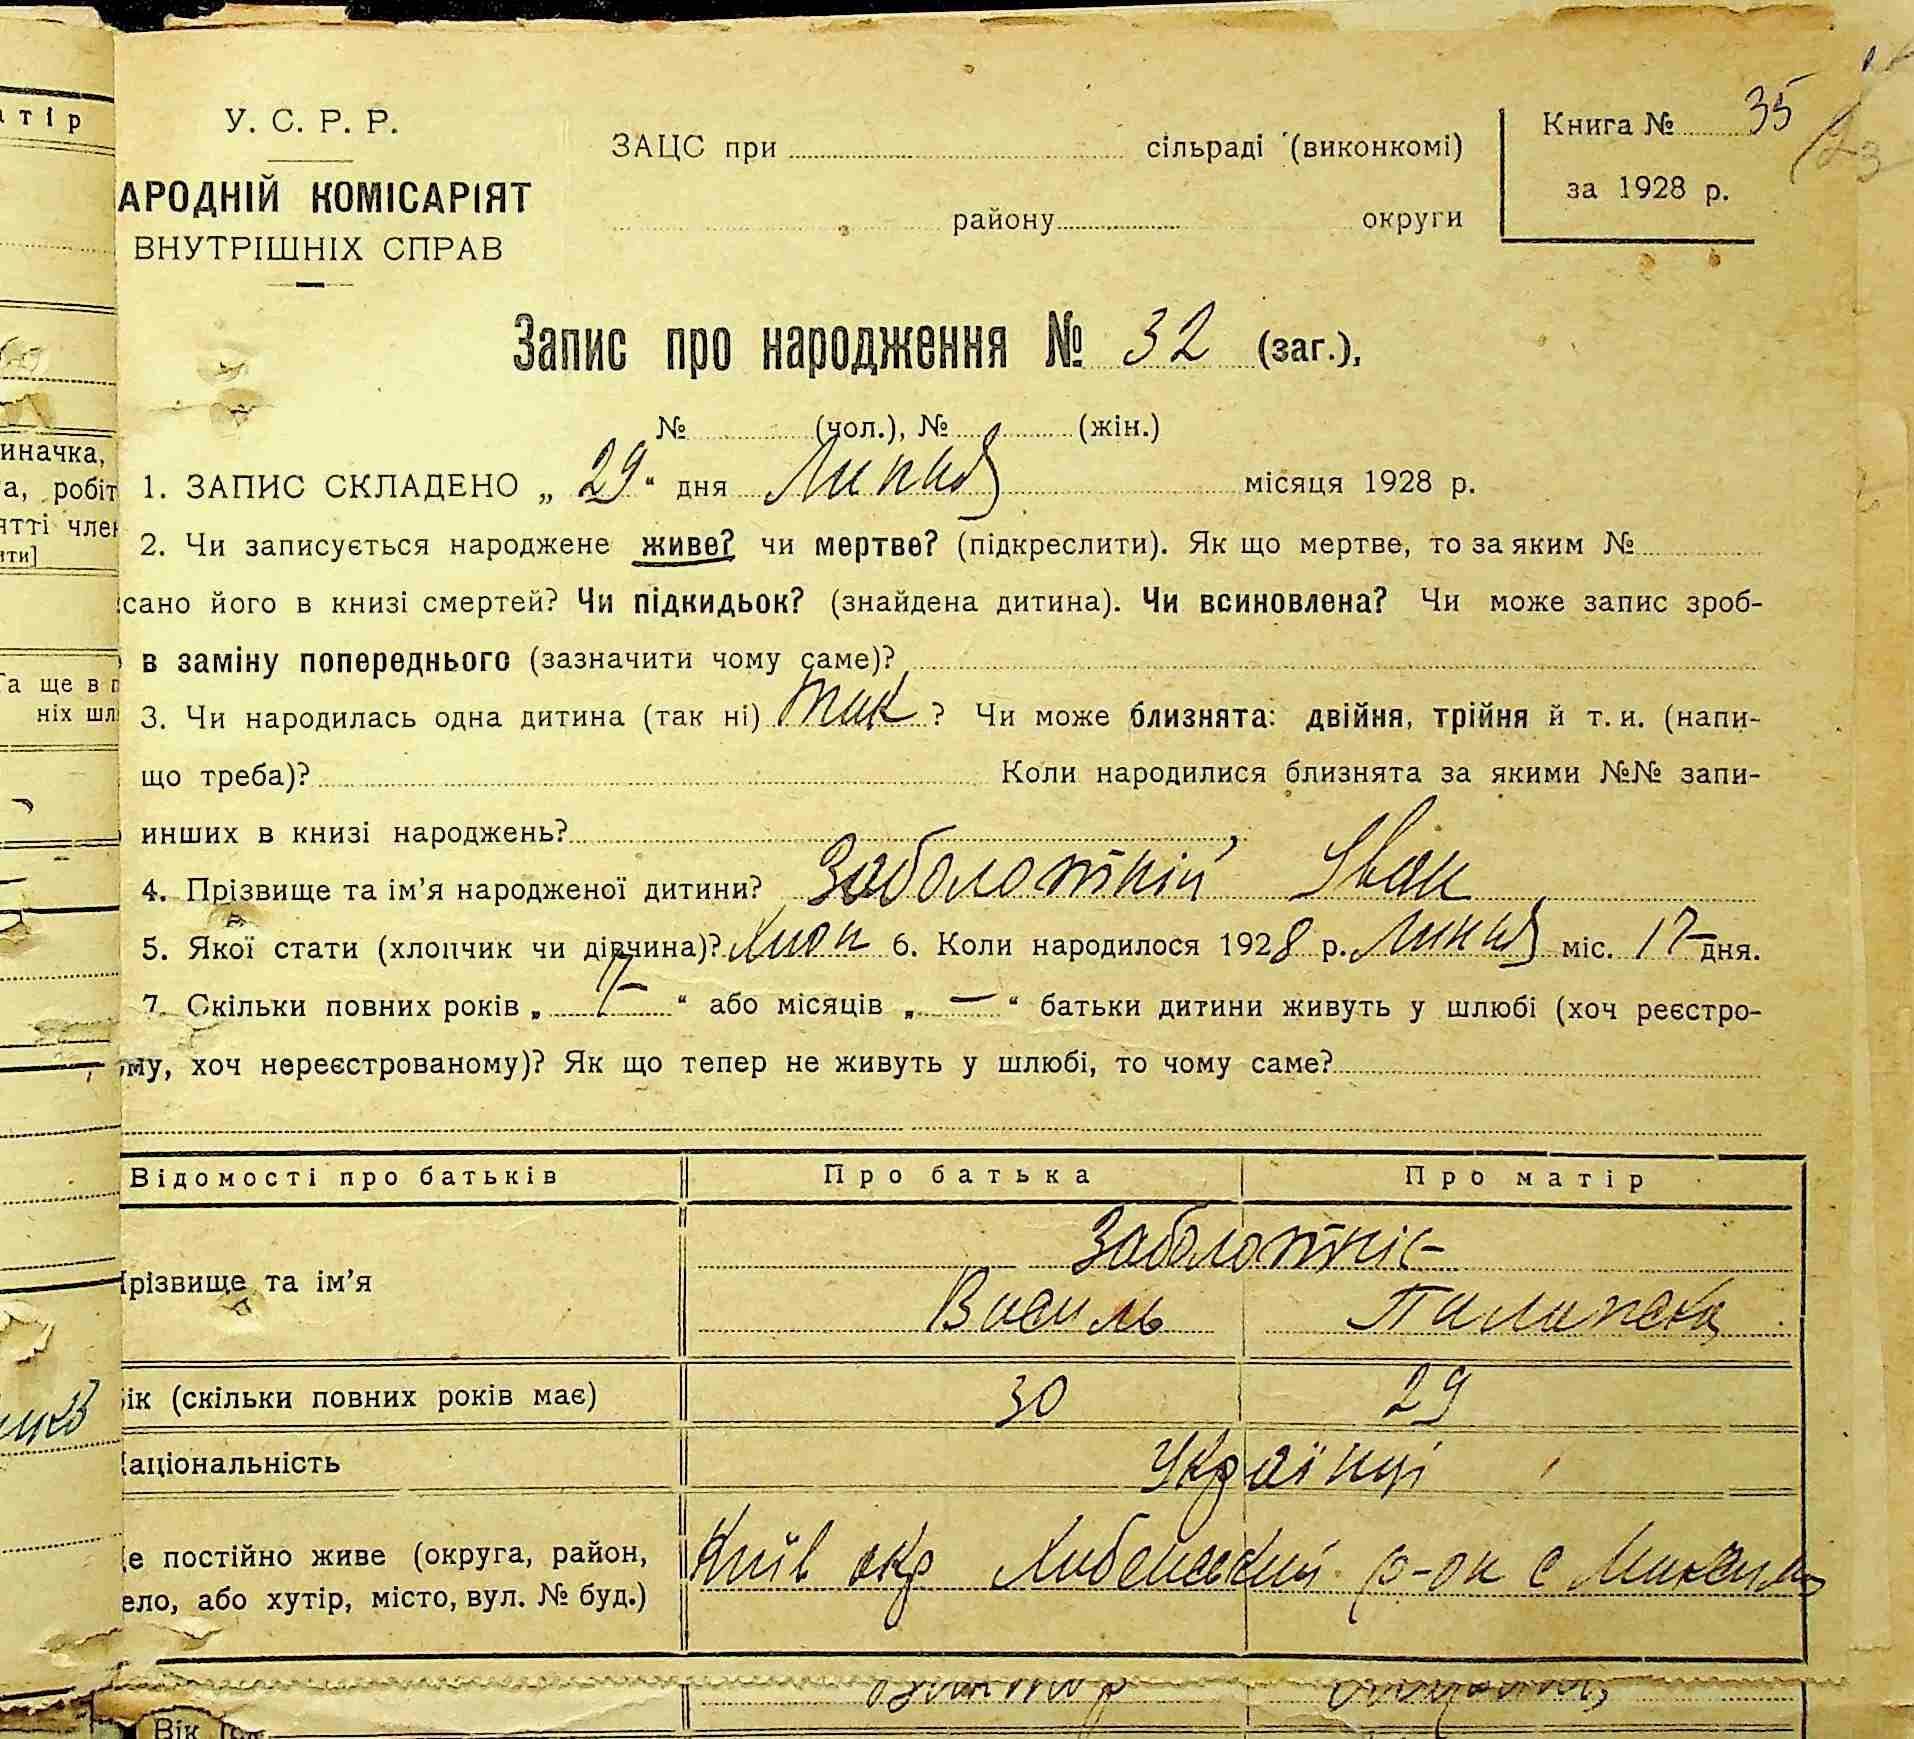 У. С. Р. Р.
АРОДНІЙ КОМІСАРІЯТ
ВНУТРІШНІХ СПРАВ
ЗАЦС при сільраді (виконкомі)
району округи
Книга № 35
за 1928 р.
Запис про народження № 32 (заг.),
№ (чол.), № (жін.)
1. ЗАПИС СКЛАДЕНО „ 29 “ дня Липня місяця 1928 р.
2. Чи записується народжене живе? чи мертве? (підкреслити). Як що мертве, то за яким №
сано його в книзі смертей? Чи підкидьок? (знайдена дитина). Чи всиновлена? Чи може запис зроб-
в заміну попереднього (зазначити чому саме)?
3. Чи народилась одна дитина (так ні) так ? Чи може близнята: двійня, трійня й т. и. (напи-
що треба)? Коли народилися близнята за якими №№ запи-
инших в книзі народжень?
4. Прізвище та ім’я народженої дитини? Заболотній Іван
5. Якої стати (хлопчик чи дівчина)? Хлоп 6. Коли народилося 1928 р. Липня міс. 17 дня.
7. Скільки повних років „ 7 “ або місяців „ — “ батьки дитини живуть у шлюбі (хоч реєстро-
ому, хоч нереєстрованому)? Як що тепер не живуть у шлюбі, то чому саме?
Відомості про батьків Про батька Про матір
Прізвище та ім’я Заболотні
Василь
ік (скільки повних років має) 30 29
аціональність Українці
е постійно живе (округа, район, Київ окр р-он с
ело, або хутір, місто, вул. № буд.)
Вік
тір
иначка,
а, робіт
ятті член
ити]
Та ще в п
ніх шл